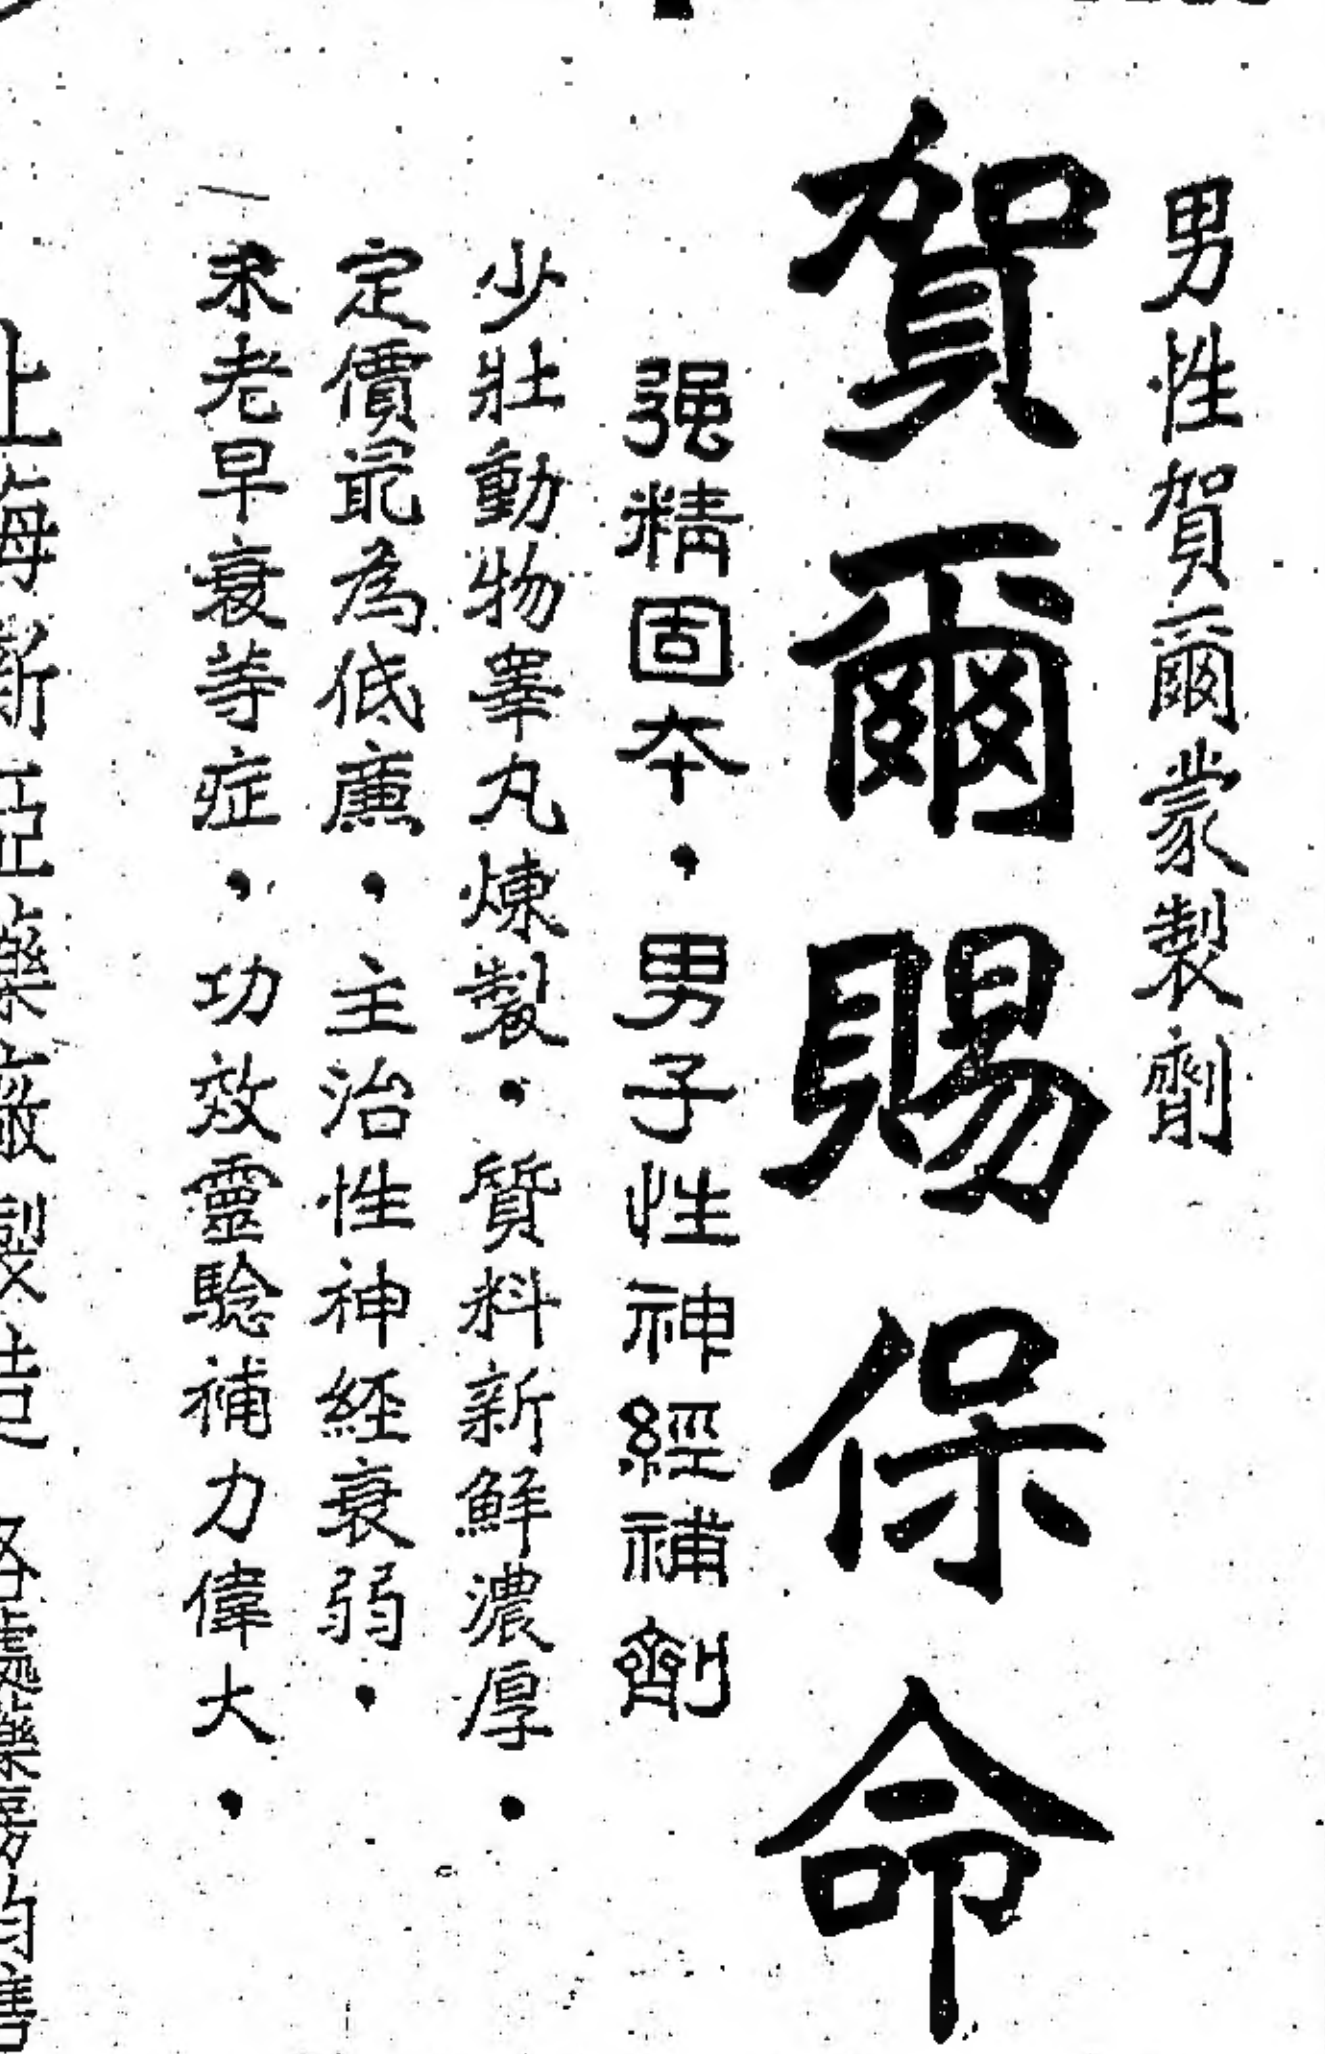 男性賀爾蒙製劑
賀爾賜保命
强精固本，男子性神經補劑
少壯動物睪丸煉製，質料新鮮濃厚，
定價最為低廉，主治性神経衰弱，
未老早衰等症，功效靈驗補力偉大，
上海新亞藥廠製造 各處藥房均售